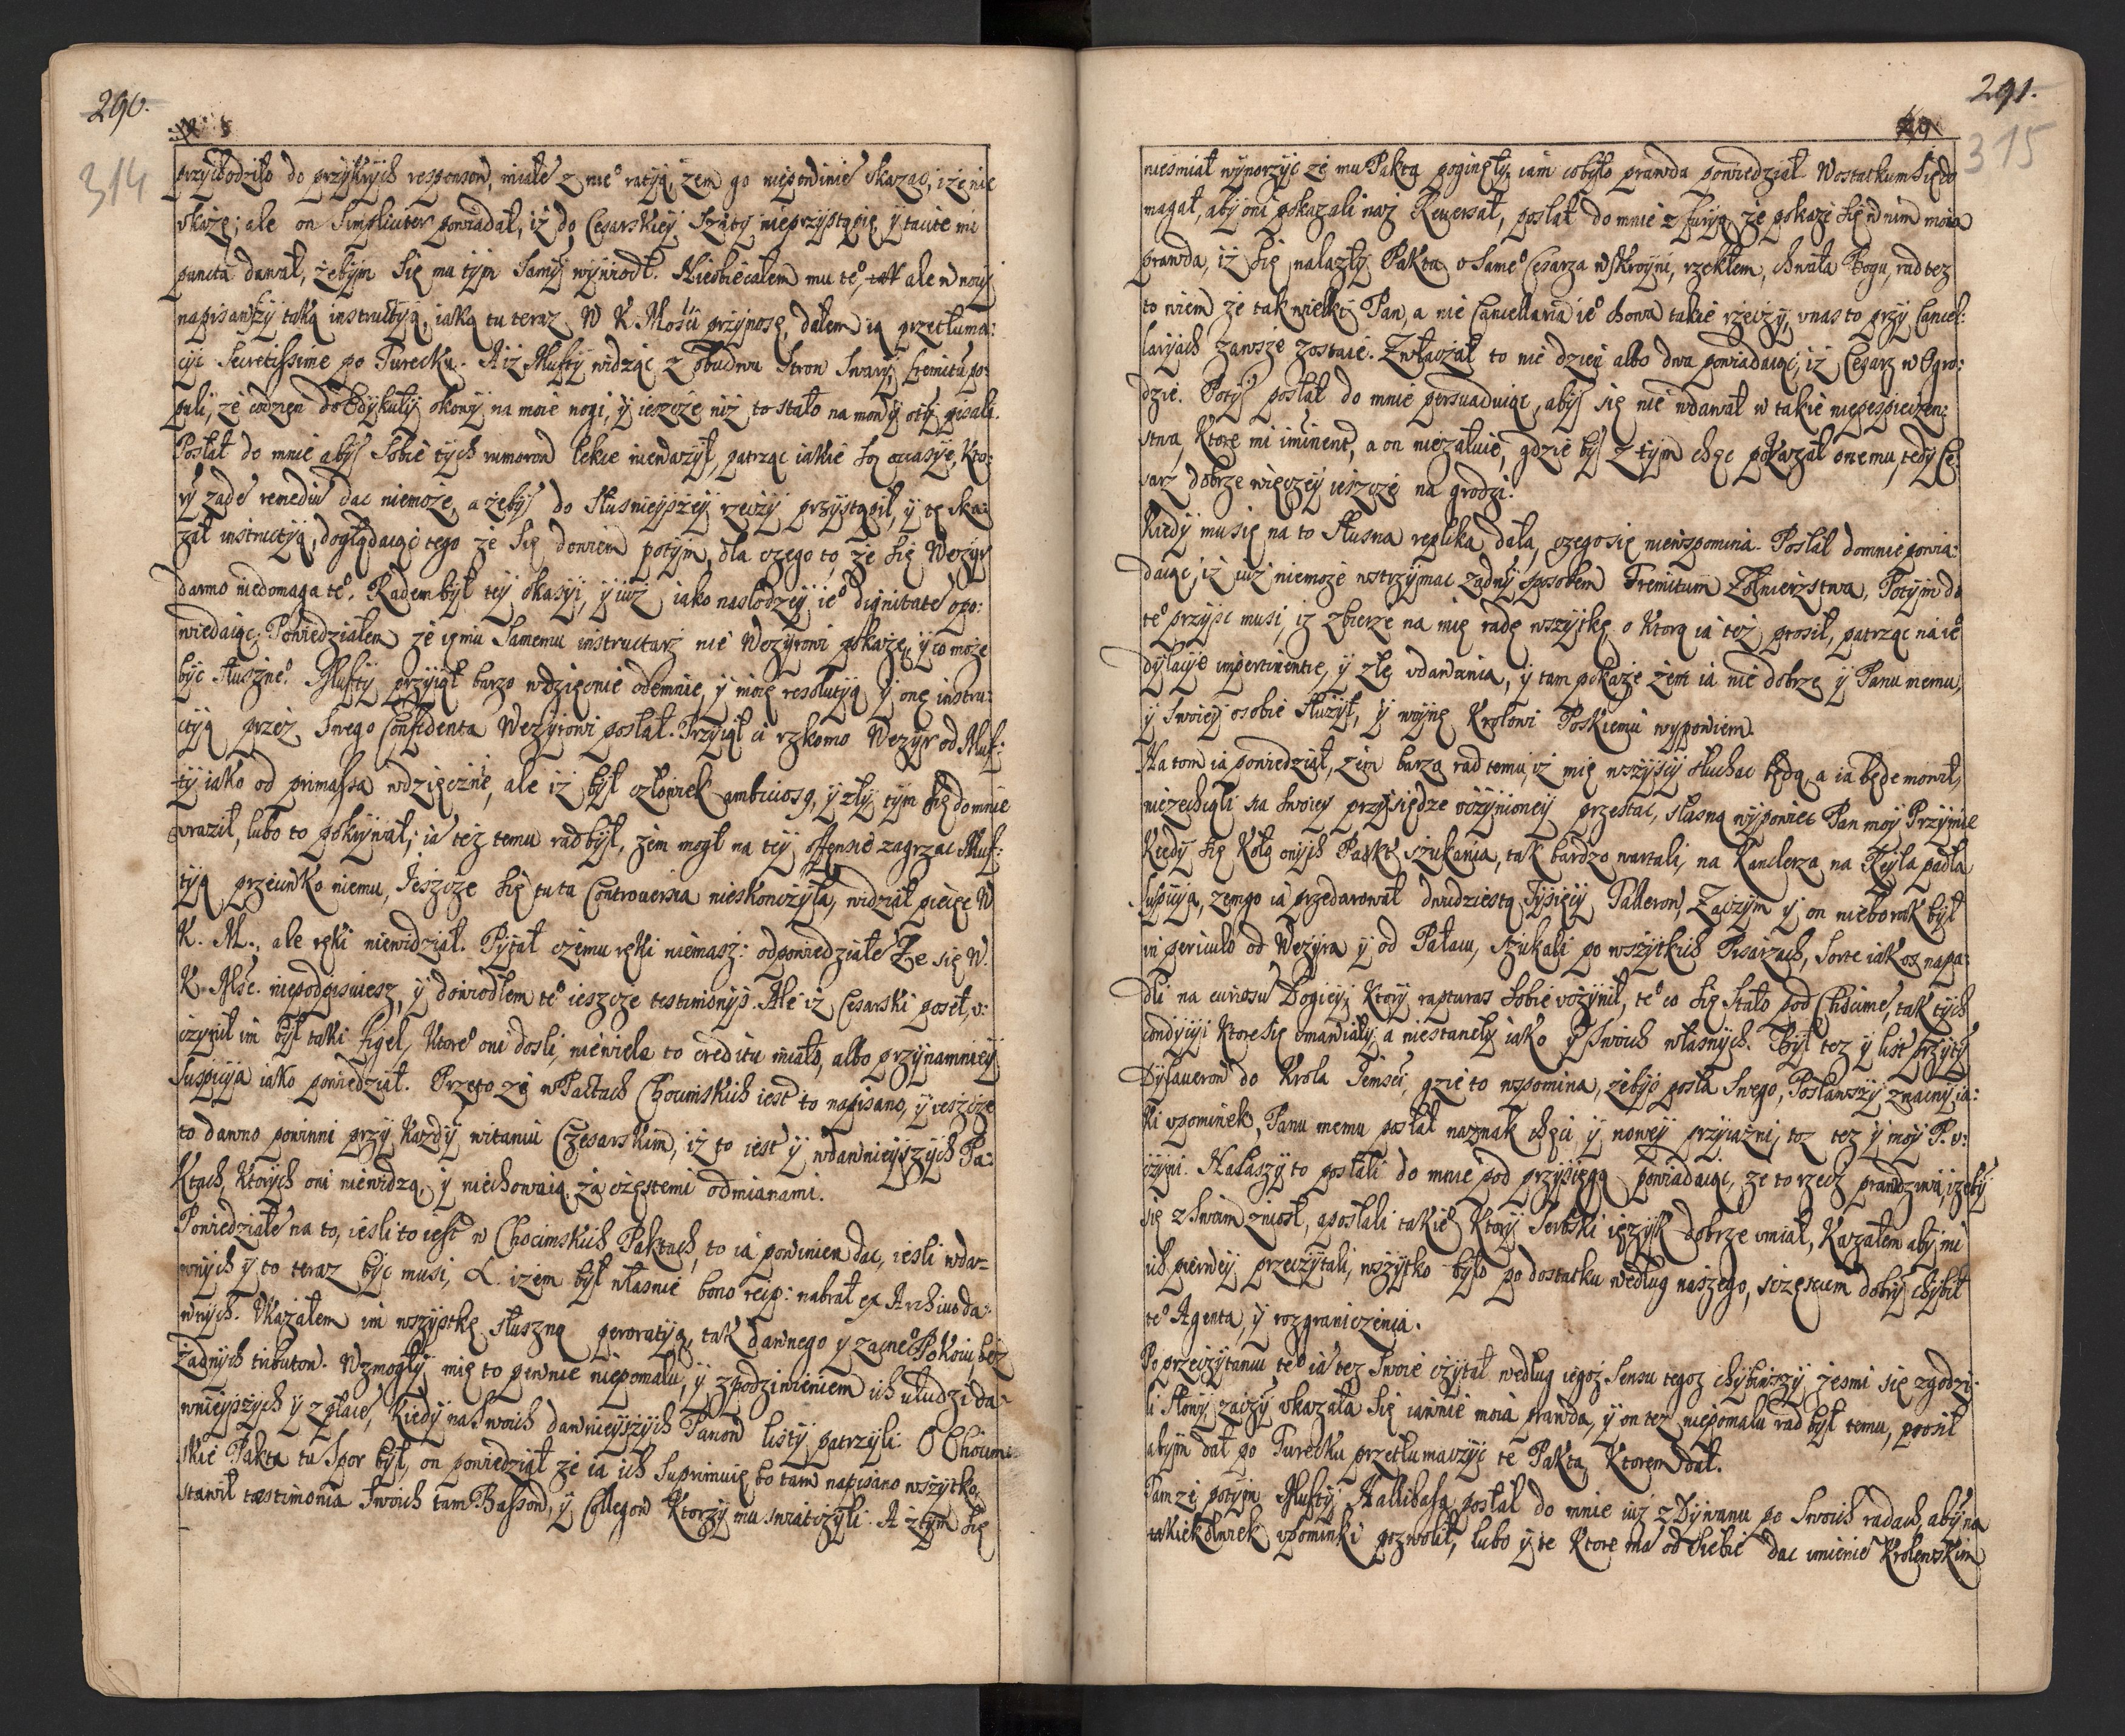 290.
314
przychodziło do przykrych responsow, miałē z nie° ratyą, zem go niepowiniē skazac, iże nie
vkażę; ale on Simpliciter powiadał, iż do Cesarskiey Szaty nieprzystąpię y tacite mi
puncta dawał, żebym się mu tym samy wywiodł. Nieobiecałem mu te°, ale w nocy
napisawszy taką instructyą, iaką tu teraz W K. Mości przynoszę, dałem ią przetłuma:
czyc Secretissime po Turecku. A iż Mufty widząc z obudwu Stron Swary, fremitū po:
puli, że codzien do Edykuły okowy na moie nogi, y ieszcze niż to stało na mowy
Posłał do mnie abyſ sobie tych rumorow lekce nieważył, patrząc iakie są occasye, kto:
ry zadē remediū dac niemoże, a żebyſ do słusnieyszey rzeczy przystąpił, y tę ska:
zał instructyą, doglądaiąc tego że się dowiem potym, dla czego to że się Wezyr
darmo niedomaga te°. Radem był tey okasyi, y iuż iako nasłodzey ie° dignitatē opo:
wiedaiąc. Powiedziałem że iemu samemu instructarz nie Wezyrowi pokażę, y co może
być słuszne°. Mufty przyiął barzo wdzięcznie odemnie, y moię resolutyą y onę instru:
ctyą przez Swego Confidenta Wezyrowi posłał. Przyiął ci rzkomo Wezyr od Muf:
ty iako od primassa wdzięcznie, ale iż był człowiek ambicioso, y zły tym się do mnie
vraził, lubo to pokrywał; ia też temu rad był, żem mogł na tey offensie zagrzac Muf:
tyą przeciwko niemu, Ieszcze się ta tu Controuersia nieskonczyła, widział pieczęc W
K. M., ale ręki niewidział. Pytał czemu ręki niemasz: odpowiedziałē Że się W.
K. Mśc. niepodpisuiesz, y dowiodłem te° ieszcze testimonijs. Ale iż Cesarski poseł, v:
czynił im był taki figel, ktore° oni doszli, niewiela to creditu miało, albo przynamniey
Suspicya iako powiedział. Przeto że w Pactach Chocimskich iest to napisano, y ieszcze
to dawno powinni przy każdy witaniu Czesarskim, iż to iest y wdawnieyszych Pa:
ktach, ktorych oni niewidzą, y niechowaią, za częstemi odmianami.
Powiedziałē na to, iesli to iest w Chocimskich Paktach, to ia powinien dac, iesli wda-
wnych y to teraz być musi, &. iżem był własnie bono reip: nabrał ex Archiuo da:
wnych. Vkazałem im wszystkę słuszną peroratyą, tak dawnego y zacne° Pokoiu bez
żadnych tributow. Wzmogły mię to pewnie niepomału, y zpodziwieniem ich v ludzi da:
wnieyszych y zgłace, kiedy na Swoich dawnieyszych Panow listy patrzyli O Chocim:
skie Pakta tu Spor był, on powiedział że ia ich Suprimuię bo tam napisano wszytko,
stawił tæstimonia Swoich tam Bassow, y Collegow ktorzy mu swiatczyli. A ztym się
291.
315
niesmiał wynorzyć że mu Pakta poginęły, iam co było prawda powiedział Wostatkum się do
magał, aby oni pokazali nasz Reuersał, posłał do mnie z furyą, że pokaże się w nim moia
prawda, iż się nalazły Pakta v Same° Cesarza wskrzyni, rzekłem, chwała Bogu, rad tez
to wiem że tak wielki Pan, a nie Cancellaria ie° chowa takie rzeczy, v nas to przy Cancel:
laryach zawsze zostaie. Zwłaczał to nie dzień albo dwa powiadaiąc, iż Cesarz w Ogro:
dzie. Potyſ posłał do mnie persuaduiąc, abyſ się nie wdawał w takie niepespieczen:
stwa, ktore mi iminent, a on nieżałuie, gdzie byſ z tym chęc pokazał onemu, tedy Ce:
sarz dobrze więczey ieszcze nagrodzi.
Kiedy mu się na to słusna replika dała, czego się niewspomina. Posłał domnie powia:
daiąc, iż iuż niemoże wstrzymac żadny sposobem Fremitum Żołnierzstwa, Potym do
te° przysc musi, iz zbierze na mię radę wszytkę o ktorą ia też prosił, patrząc na ie°
dylacye impertinentie, y złę vdawania, y tam pokażę żem ia nie dobrze y Panu memu,
y swoiey osobie służył, y woynę Krolowi Poskiemu wypowiem.
Na tom ia powiedział, żem barzo rad temu, iż mię wszyscy słuchac będą, a ia będę mowił,
niezechcąli na swoiey przysiędze vczynioney przestac, słasną wypowiec Pan moy Przyimie
Kiedy się koło onych Pakt szukania, tak bardzo wartali, na Kanclerza na Reyla padła
Suspicya, żemgo ia przedarował dwudziestą Tysięcy Tallerow, Zaczym y on nieborak był
in periculo od Wezyra y od Pałacu, szukali po wszytkich Pisarzach, Sorte iakos napa:
dli na curiosū Dogiey; ktory rapturas sobie vczynił, te° co się stało pod Chocimē, tak tych
condycyi ktore się vmawiały, a niestanęły iako y Swoich własnych. Był tez y list przyty
Dysaueron do Krola Iemści, gzie to wspomina, żebys posła Swego, Posławszy znaczny ia:
ki vpominek, Panu memu posłał naznak chęci y nowey przyiazni, toz tez y moy P. v:
czyni. Nalaszy to posłali do mnie pod przysięgą powiadaiąc, że to rzecz prawdziwa, iżeby
się z Swoim zniosł, a posłali takie° ktory Serbski ięzyk dobrze vmiał, Kazałem aby mi
ich pierwey przeczytali, wszytko było po dostatku według naszego, sczęsciem dobry chybił
te° Agenta, y rozgraniczenia.
Po przeczytaniu te° ia tez Swoie czytał według iegoż Sensu tegoż chybiwszy żesmi się zgodzi:
li słowy zaczy vkazała się iawnie moia prawda, y on tez niepomału rad był temu, prosił
abym dał po Turecku przetłumaczyć te Pakta, ktorem dał.
Tamże potym Mufty Hallibasa posłał do mnie iuż z Dywanu po Swoich radach, aby na
iakiekolwiek vpominki pozwolił, lubo y te ktore ma od siebie dac imienie° Krolewskim